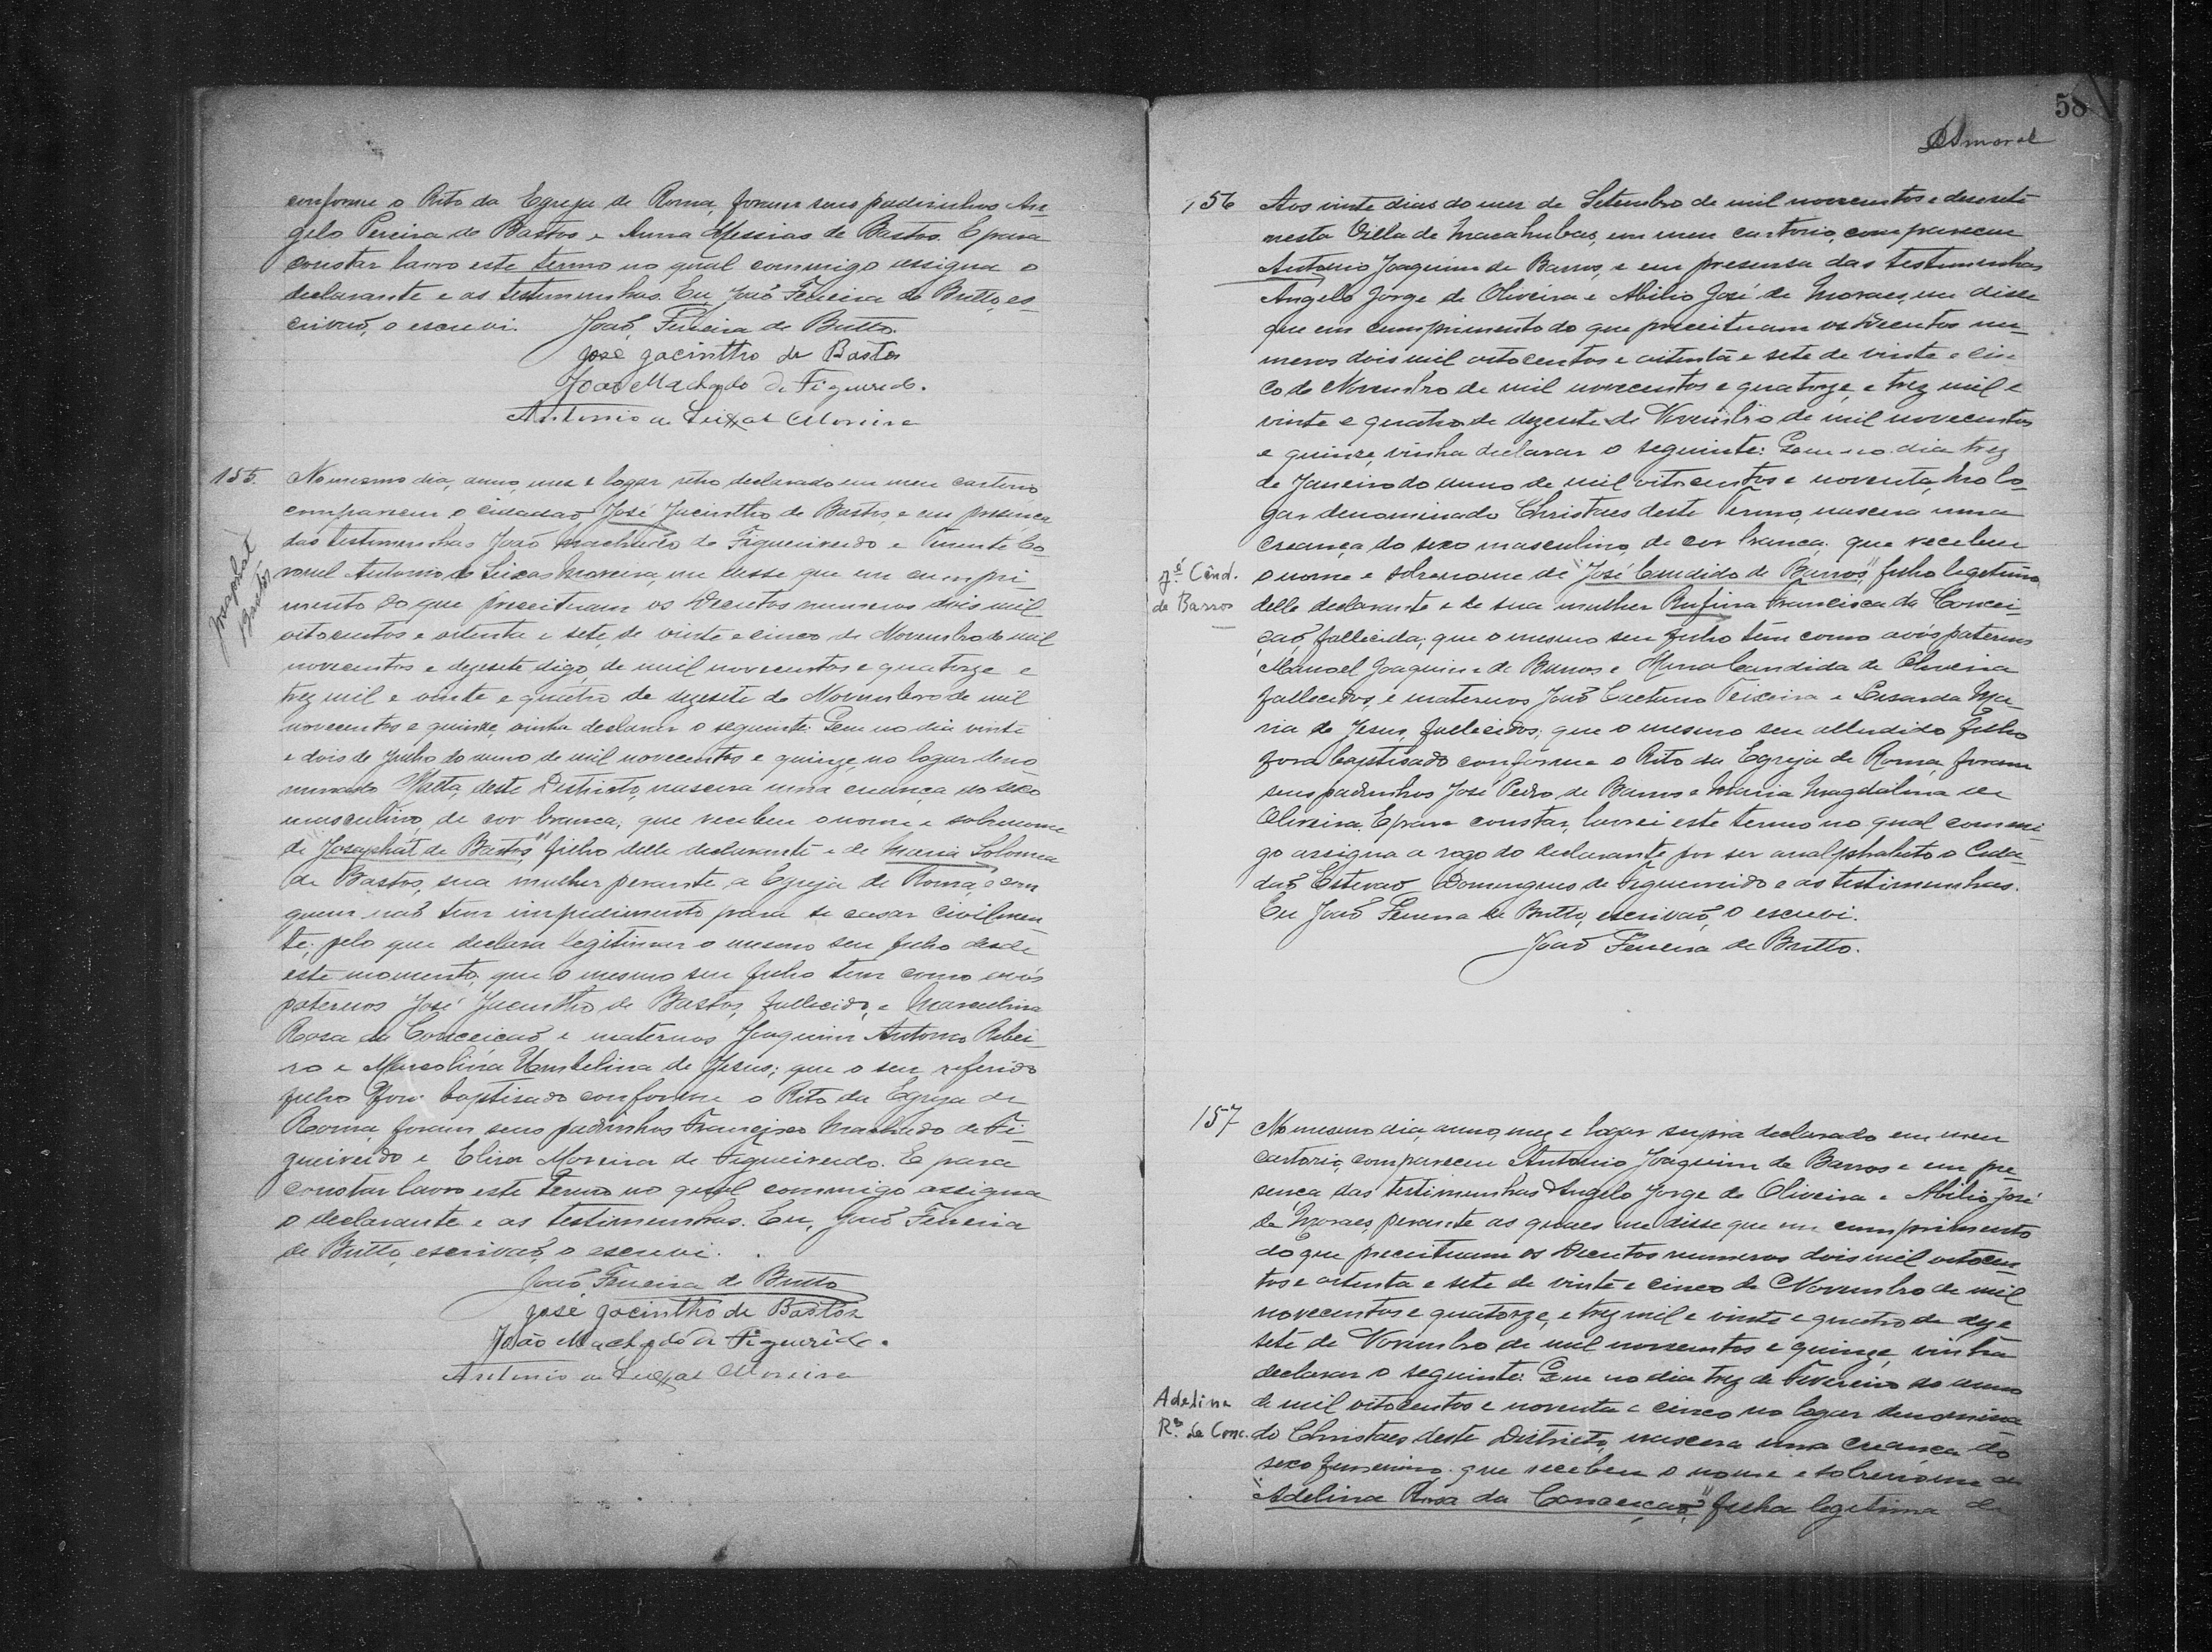 conforme o Rito da Egreja de Roma, foram seus padrinhos An-
gelo Pereira de Bastos e Anna Messias de Bastos. E para
constar lavro este termo no qual commigo assigna o
declarante e as testimunhas. Eu, João Ferreira de Britto, es-
crivaõ, o escrevi. João Ferreira de Britto.
José Jacinttho de Bastos
João Machado de Figueiredo.
Antonio de Seixas Moreira
155. No mesmo dia, anno, mez e logar retro declarado em meu cartorio
compareceu o cidadaõ José Jacintho de Bastos, e em presença
das testimunhas João Machado de Figueiredo e Tenente Co-
ronel Antonio de Seixas Moreira, me disse que em cumpri-
mento do que preceituam os Decretos numeros dois mil
oitocentos e oitenta e sete, de vinte e cinco de Novembro de mil
novecentos e dezesete digo, de mil novecentos e quatorze e
trez mil e vinte e quatro de dezesete de Novembro de mil
novecentos e quinze, vinha declarar o seguinte: Que no dia vinte
e dois de Junho do anno de mil novecentos e quinze, no logar deno
minado Matta, deste Districto, nascera uma creança do sexo
masculino, de cor branca; que recebeu o nome e sobrenome
de "Josaphat de Bastos" filho delle declarante e de Maria Solomea
de Bastos, sua mulher perante a Egreja de Roma, e com
quem naõ tem impedimento para se casar civilmen-
te; pelo que declara legitimar o mesmo seu filho desde
este momento, que o mesmo seu filho tem como avós
paternos José Jacintho de Bastos, fallecido, e Marcolina
Rosa da Conceicaõ e maternos Joaquim Antonio Ribei-
ro e Marcolina Umbelina de Jesus; que o seu referido
filho fora baptisado conforme o Rito da Egreja de
Roma, foram seus padrinhos Francisco Machado de Fi-
gueiredo e Elisa Moreira de Figueiredo. E para
constar lavro este termo no qual commigo assigna
o declarante e as testimunhas. Eu, João Ferreira
de Britto, escrivaõ, o escrevi.
João Ferreira de Britto
José Jacinttho de Bastos
João Machado de Figueirêdo.
Antonio de Seixas Moreira
Josaphat
Bastos
58
Amaral
156 Aos vinte dias do mez de Setembro de mil novecentos e desesete
nesta Villa de Macahubas, em meu cartorio, compareceu
Antonio Joaquim de Barros, e em presensa das testimunhas
Angelo Jorge de Oliveira e Abilio José de Moraes, me disse
que em cumprimento do que preceituam os Decretos nu-
meros dois mil oitocentos e oitenta e sete de vinte e cin-
co de Novembro de mil novecentos e quatorze, e trez mil e
vinte e quatro de dezesete de Novembro de mil novecentos
e quinze, vinha declarar o seguinte: Que no dia trez
de Janeiro do anno de mil oitocentos e noventa, no lo-
gar denominado Christaes deste Termo, nascera uma
creança do sexo masculino, de cor branca; que recebeu
o nome e sobrenome de "José Candido de Barros," filho legitimo
delle declarante e de sua mulher Rufina Francisca da Concei-
çaõ, fallecida; que o mesmo seu filho têm como avós paternos
Manoel Joaquim de Barros e Anna Candida de Oliveira
fallecidos, e maternos João Caetano Teixeira e Ma-
ria de Jesus, fallecidos; que o mesmo seu alludido filho
fora baptisado conforme o Rito da Egreja de Roma, foram
seus padrinhos José Pedro de Barros e Maria Magdalina de
Oliveira. E para constar, lavrei este termo no qual commi-
go assigna a rogo do declarante por ser analphabeto o Cida-
daõ Estevaõ Domingues de Figueiredo e as testimunhas.
Eu João Ferreira de Britto, escrivaõ, o escrevi.
João Ferreira de Britto.
Jé Când.
de Barros
157 No mesmo dia, anno, mez e logar supra declarado em meu
cartorio, compareceu Antonio Joaquim de Barros e em pre-
sença das testimunhas Angelo Jorge de Oliveira e Abilio José
de Moraes, perante as quaes me disse que em cumprimento
do que preceituam os Decretos numeros dois mil oitocen
tos e oitenta e sete de vinte e cinco de Novembro de mil
novecentos e quatorze, e trez mil e vinte e quatro de deze
sete de Novembro de mil novecentos e quinze, vinha
declarar o seguinte: Que no dia trez de Fevereiro do anno
de mil oitocentos e noventa e cinco no logar denomina
do Christaes deste Districto, nascera uma creança do
sexo femenino, que recebeu o nome e sobrenome de
"Adelina Rosa da Conceiçaõ," filha legitima de
Adelina
Rs. da Conc.